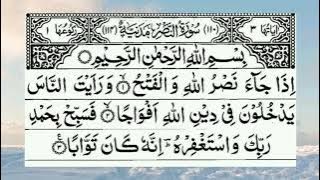 اٰيَاتُهَا ٣ (١١٠) سُوْرَةُ النَّصْرِ مَدَنِيَّةٌ (١١٤) رُكُوْعُهَا ١
بِسْمِ اللّٰهِ الرَّحْمٰنِ الرَّحِيْمِ
اِذَا جَآءَ نَصْرُ اللّٰهِ وَالْفَتْحُ ۙ١ وَرَاَيْتَ النَّاسَ
يَدْخُلُوْنَ فِيْ دِيْنِ اللّٰهِ اَفْوَاجًا ۙ٢ فَسَبِّحْ بِحَمْدِ
رَبِّكَ وَاسْتَغْفِرْهُ ؔ اِنَّهٗ كَانَ تَوَّابًا ٣